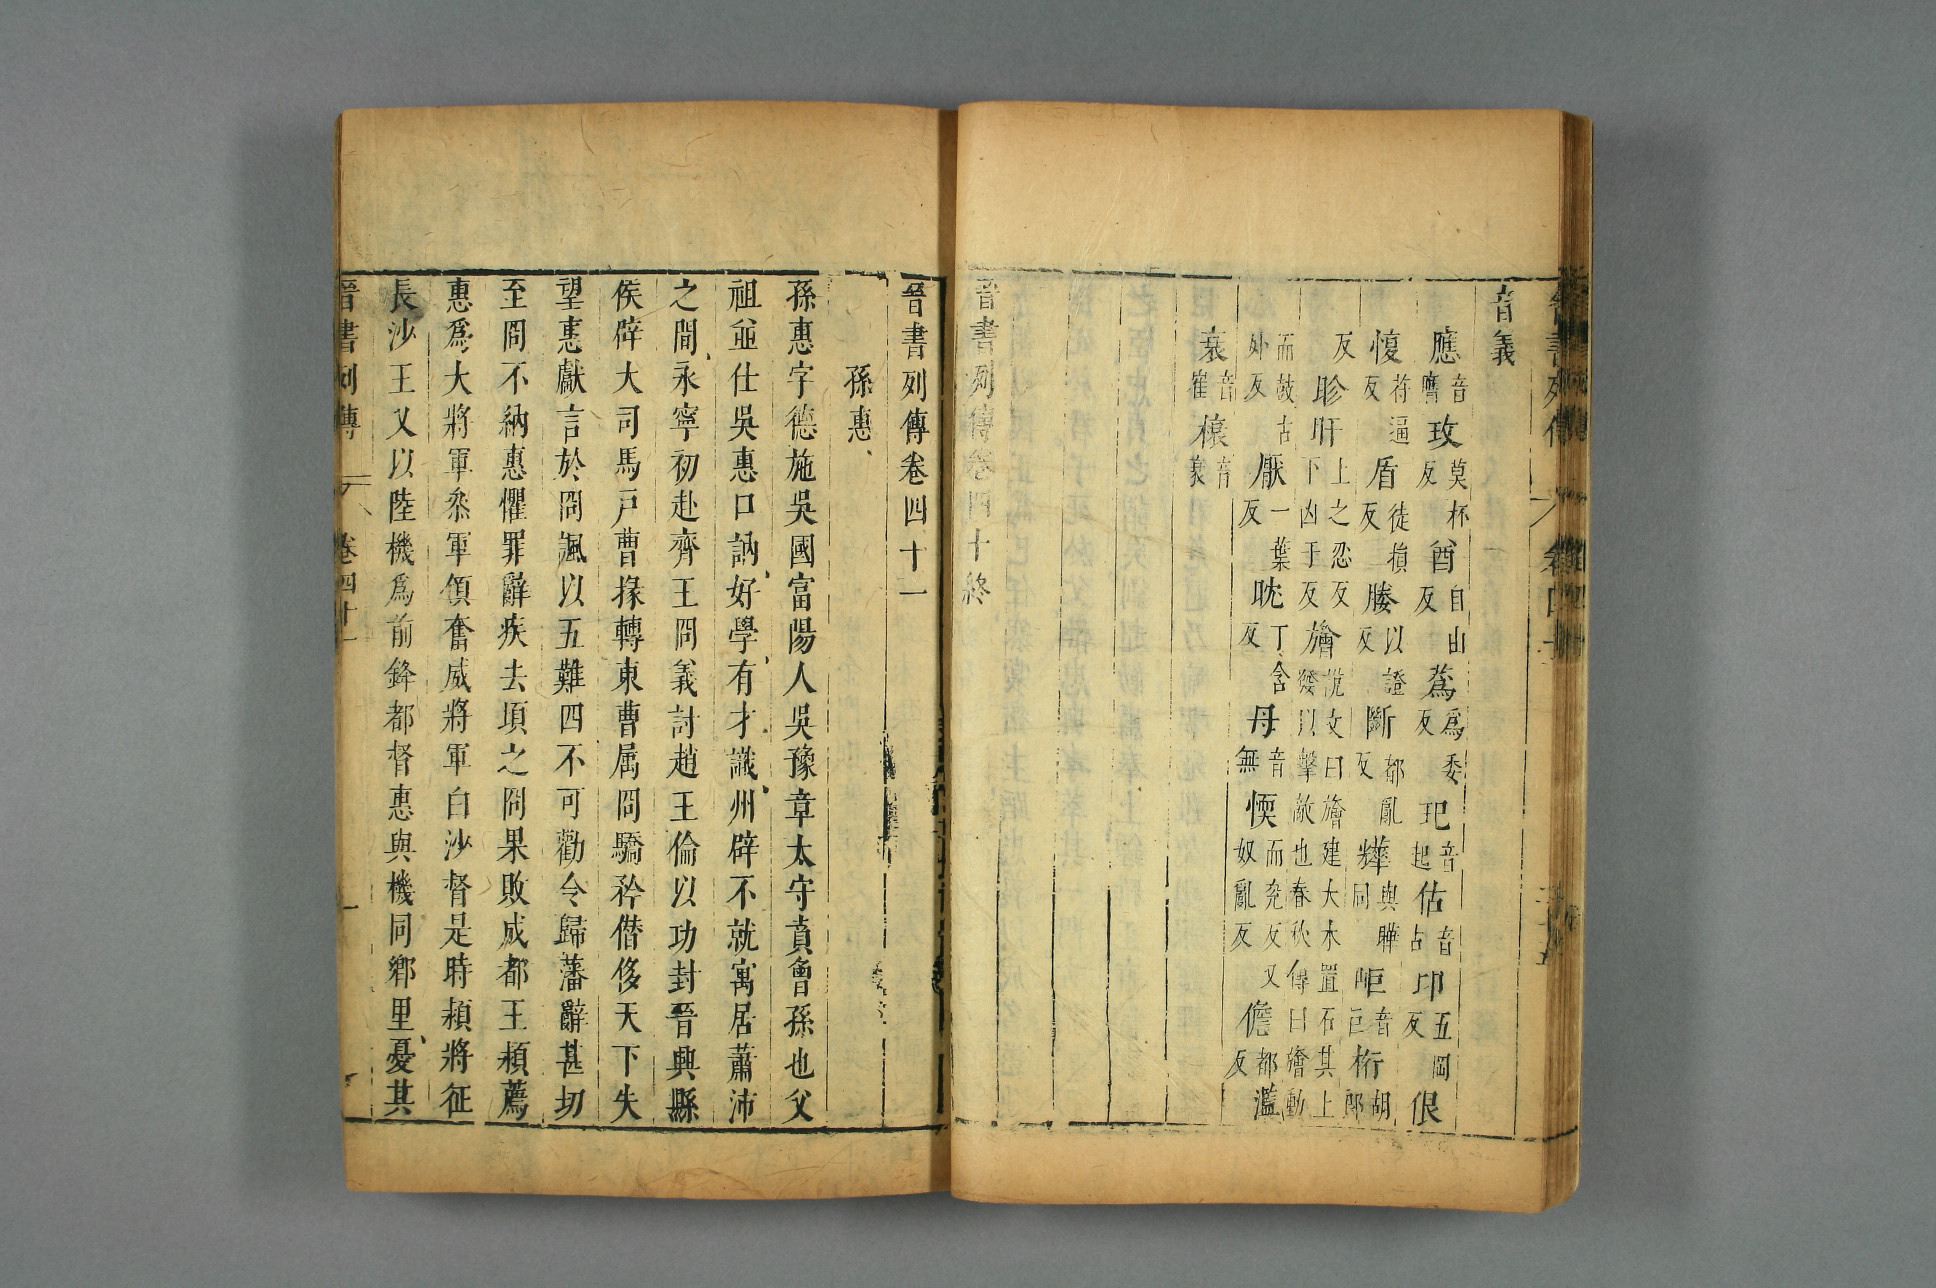 音義
應音膺玫莫杯反酋自由反蔿爲委反玘音起估音占卬五岡反佷
愎符逼反盾徒損反塍以證反斷都亂反韡與韡同岠音巨桁胡郎
反眕上之忍反盱下凶于反旝說文曰旝建大木置石其上發以擊敵也春秋傳曰旝動
而鼓古外反厭一葉反耽丁含反毋音無愞而兖反又奴亂反儋都濫反
衰音崔榱音衰
晉書列傳卷四十終
晉書列傳卷四十一
孫惠
孫惠字德施吳國富陽人吳豫章太守賁曾孫也父
祖並仕吳惠口訥好學有才識州辟不就寓居蕭沛
之間永寧初赴齊王冏義討趙王倫以功封晉興縣
侯辟大司馬戶曹掾轉東曹属冏驕矜僭侈天下失
望惠獻言於冏諷以五難四不可勸令歸藩辭甚切
至冏不納惠懼罪辭疾去頃之冏果敗成都王穎薦
惠爲大將軍叅軍領奮威將軍白沙督是時穎將征
長沙王乂以陸機爲前鋒都督惠與機同鄉里憂其
晉書列傳 卷四十一 一